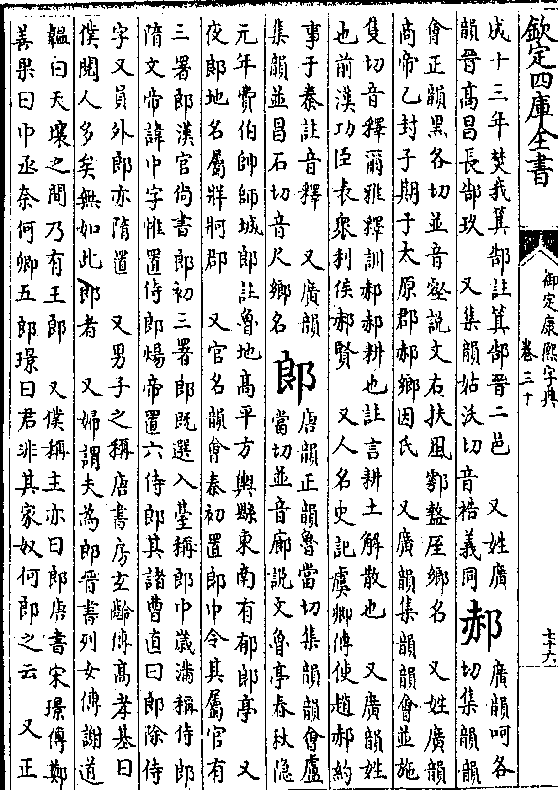 欽定四庫全書
御定康熙字典
卷三十
七十六
成十三年焚我箕郜註箕郜晉二邑　又姓廣
韻晉高昌長郜玖　又集韻姑沃切音梏義同 郝 廣韻呵各切集韻韻
會正韻黑各切並音壑說文右扶風鄠盩厔鄉名　又姓廣韻
商帝乙封子期于太原郡郝鄉因氏　又廣韻集韻韻會並施
隻切音釋爾雅釋訓郝郝耕也註言耕土解散也　又廣韻姓
也前漢功臣表衆利侯郝賢　又人名史記虞卿傳使趙郝約
事于秦註音釋　又廣韻
集韻並昌石切音尺鄉名 郎 唐韻正韻魯當切集韻韻會盧
當切並音廊說文魯亭春秋隱
元年費伯帥師城郎註魯地高平方與縣東南有郁郎亭　又
夜郎地名屬牂牁郡　又官名韻會秦初置郎中令其屬官有
三署郎漢官尚書郎初三署郎既選入臺稱郎中歲滿稱侍郎
隋文帝諱中字惟置侍郎煬帝置六侍郎其諸曹直曰郎除侍
字又員外郎亦隋置　又男子之稱唐書房玄齡傳高孝基曰
僕閱人多矣無如此郎者　又婦謂夫為郎晉書列女傳謝道
韞曰天壤之間乃有王郎　又僕稱主亦曰郎唐書宋璟傳鄭
善果曰中丞奈何卿五郎璟曰君非其家奴何郎之云　又正